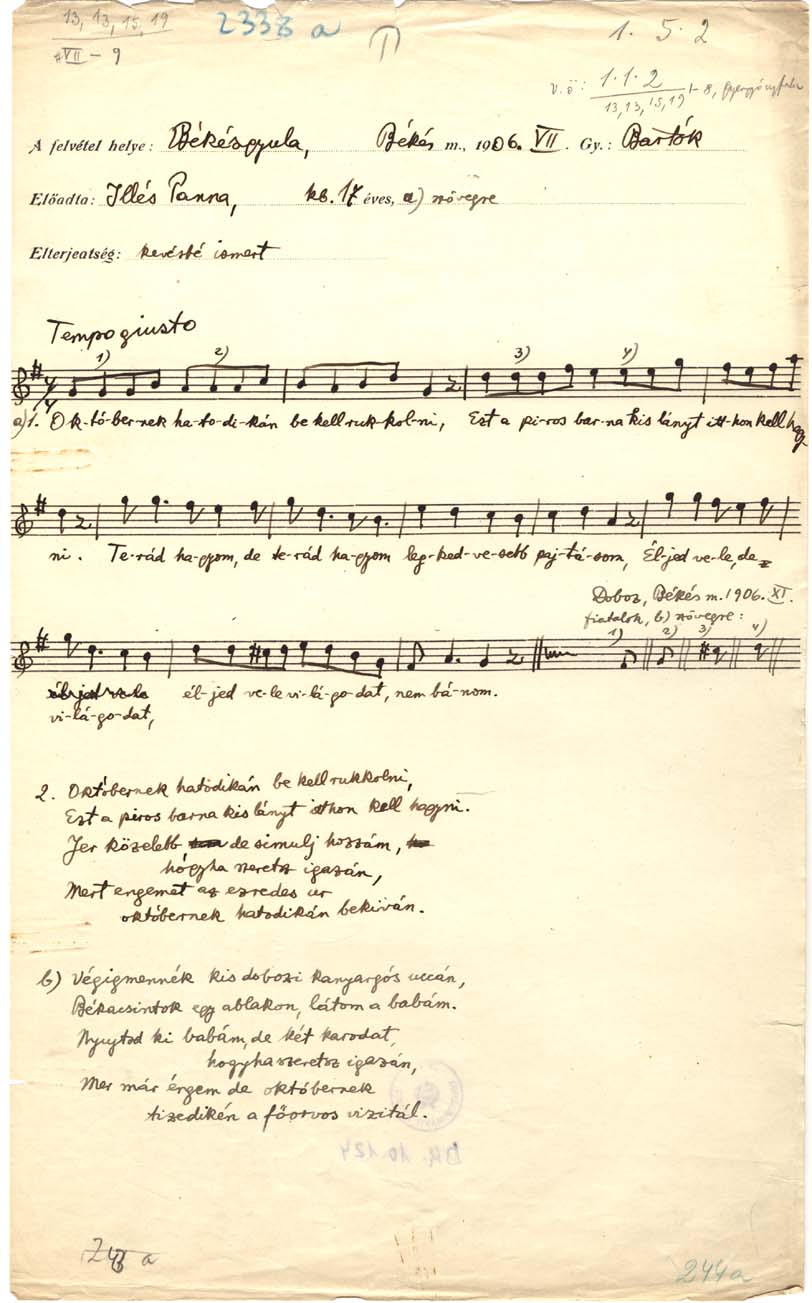 13, 13, 15, 19
VII – 9
2338 a
1. 5. 2
v. ö: 1.1.2
13, 13, 15, 19
A felvétel helye: Békésgyula, Békés m., 1906. VII. Gy.: Bartók
Előadta: Illés Panna, kb. 17 éves, a) szövegre
Elterjeatség: kevésbé ismert
Tempo giusto
1) 2) 3) 4)
a) 1. Ok-tó-ber-nek ha-to-di-kán be kell ruk-kol-ni, Ezt a pi-ros bar-na kis lányt itt-hon kell hagy-
ni. Te-rád ha-gyom, de te-rád ha-gyom leg-ked-ve-sebb paj-tá-som, Él-jed ve-le, de
Doboz, Békés m. 1906. XI.
fiatalok, b) szövegre:
1) 2) 3) 4)
él-jed ve-le él-jed ve-le vi-lá-go-dat, nem bá-nom.
vi-lá-go-dat,
2. Októbernek hatodikán be kell rukkolni,
Ezt a piros barna kis lányt itthon kell hagyni.
Jer közelebb, de simulj hozzám,
hogyha szeretsz igazán,
Mert engemet az ezredes ur
októbernek hatodikán bekiván.
b) Végigmennék kis dobozi kanyargós uccán,
Békacsintok egy ablakon, látom a babám.
Nyujtsd ki babám, de két karodat,
hogyha szeretsz igazán,
Mer már éngem de októbernek
tizedikén a főorvos vizitál.
244 a